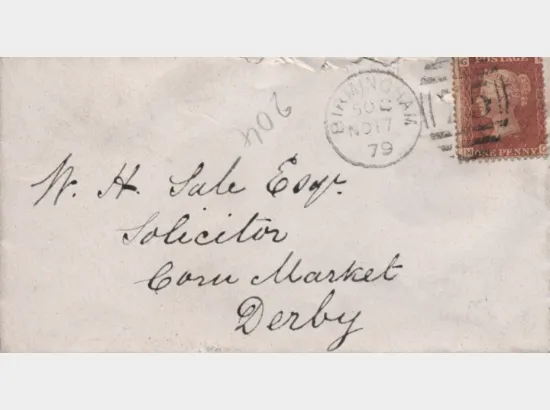 POSTAGE
ONE PENNY
BIRMINGHAM
NO 17
79
204
W. H. Sale Esqr.
Solicitor
Corn Market
Derby